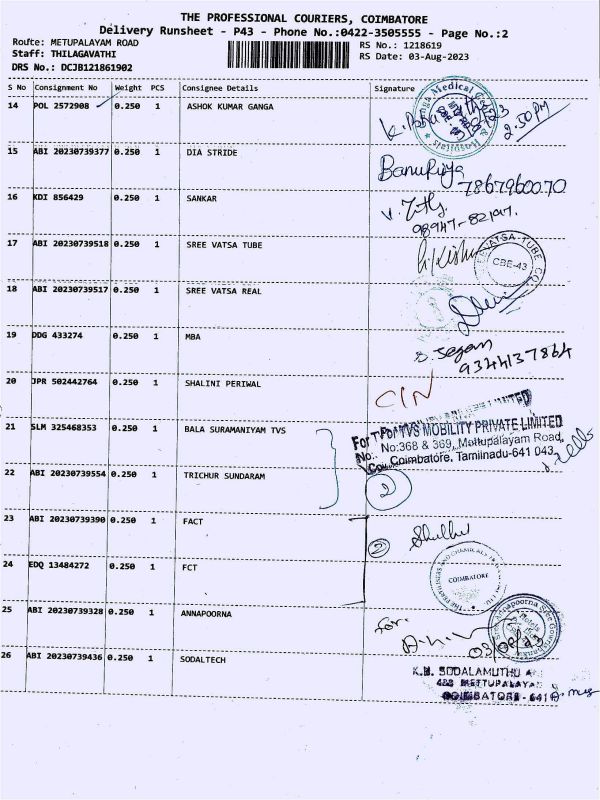 THE PROFESSIONAL COURIERS, COIMBATORE
Delivery Runsheet - P43 - Phone No.:0422-3505555 - Page No.:2
Route: METUPALAYAM ROAD
RS No.: 1218619
Staff: THILAGAVATHI
RS Date: 03-Aug-2023
DRS No.: DCJB121861902
S No Consignment No Weight PCS Consignee Details Signature
14 POL 2572908 0.250 1 ASHOK KUMAR GANGA
Ganga Medical & Hospitals
2.50 PM
15 ABI 20230739377 0.250 1 DIA STRIDE
Banupriya
7867960070
16 KDI 856429 0.250 1 SANKAR
17 ABI 20230739518 0.250 1 SREE VATSA TUBE
CBE-43
18 ABI 20230739517 0.250 1 SREE VATSA REAL
19 DDG 433274 0.250 1 MBA
9344137864
20 JPR 502442764 0.250 1 SHALINI PERIWAL
21 SLM 325468353 0.250 1 BALA SURAMANIYAM TVS
For TVS MOBILITY PRIVATE LIMITED
No:368 & 369, Mettupalayam Road,
Coimbatore, Tamilnadu-641 043
22 ABI 20230739554 0.250 1 TRICHUR SUNDARAM
2
23 ABI 20230739390 0.250 1 FACT
2
24 EDQ 13484272 0.250 1 FCT
COIMBATORE
25 ABI 20230739328 0.250 1 ANNAPOORNA
for.
26 ABI 20230739436 0.250 1 SODALTECH
K.M. SODALAMUTHU
METTUPALAYA
COIMBATORE - 641